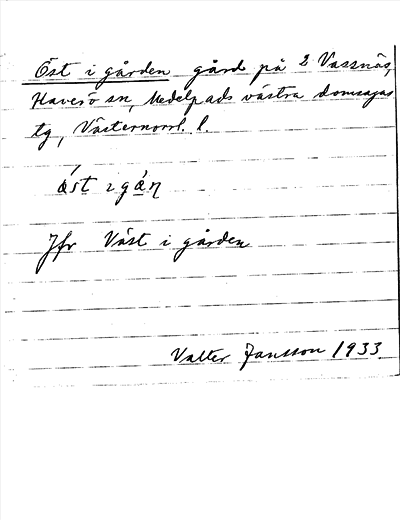 Öst i gården gård på 2 Vassnäs,
Haverö sn, Medelpads västra domsagas
tg, Västernorrl. l.
öst i gáṇ
Jfr Väst i gården
Valter Jansson 1933